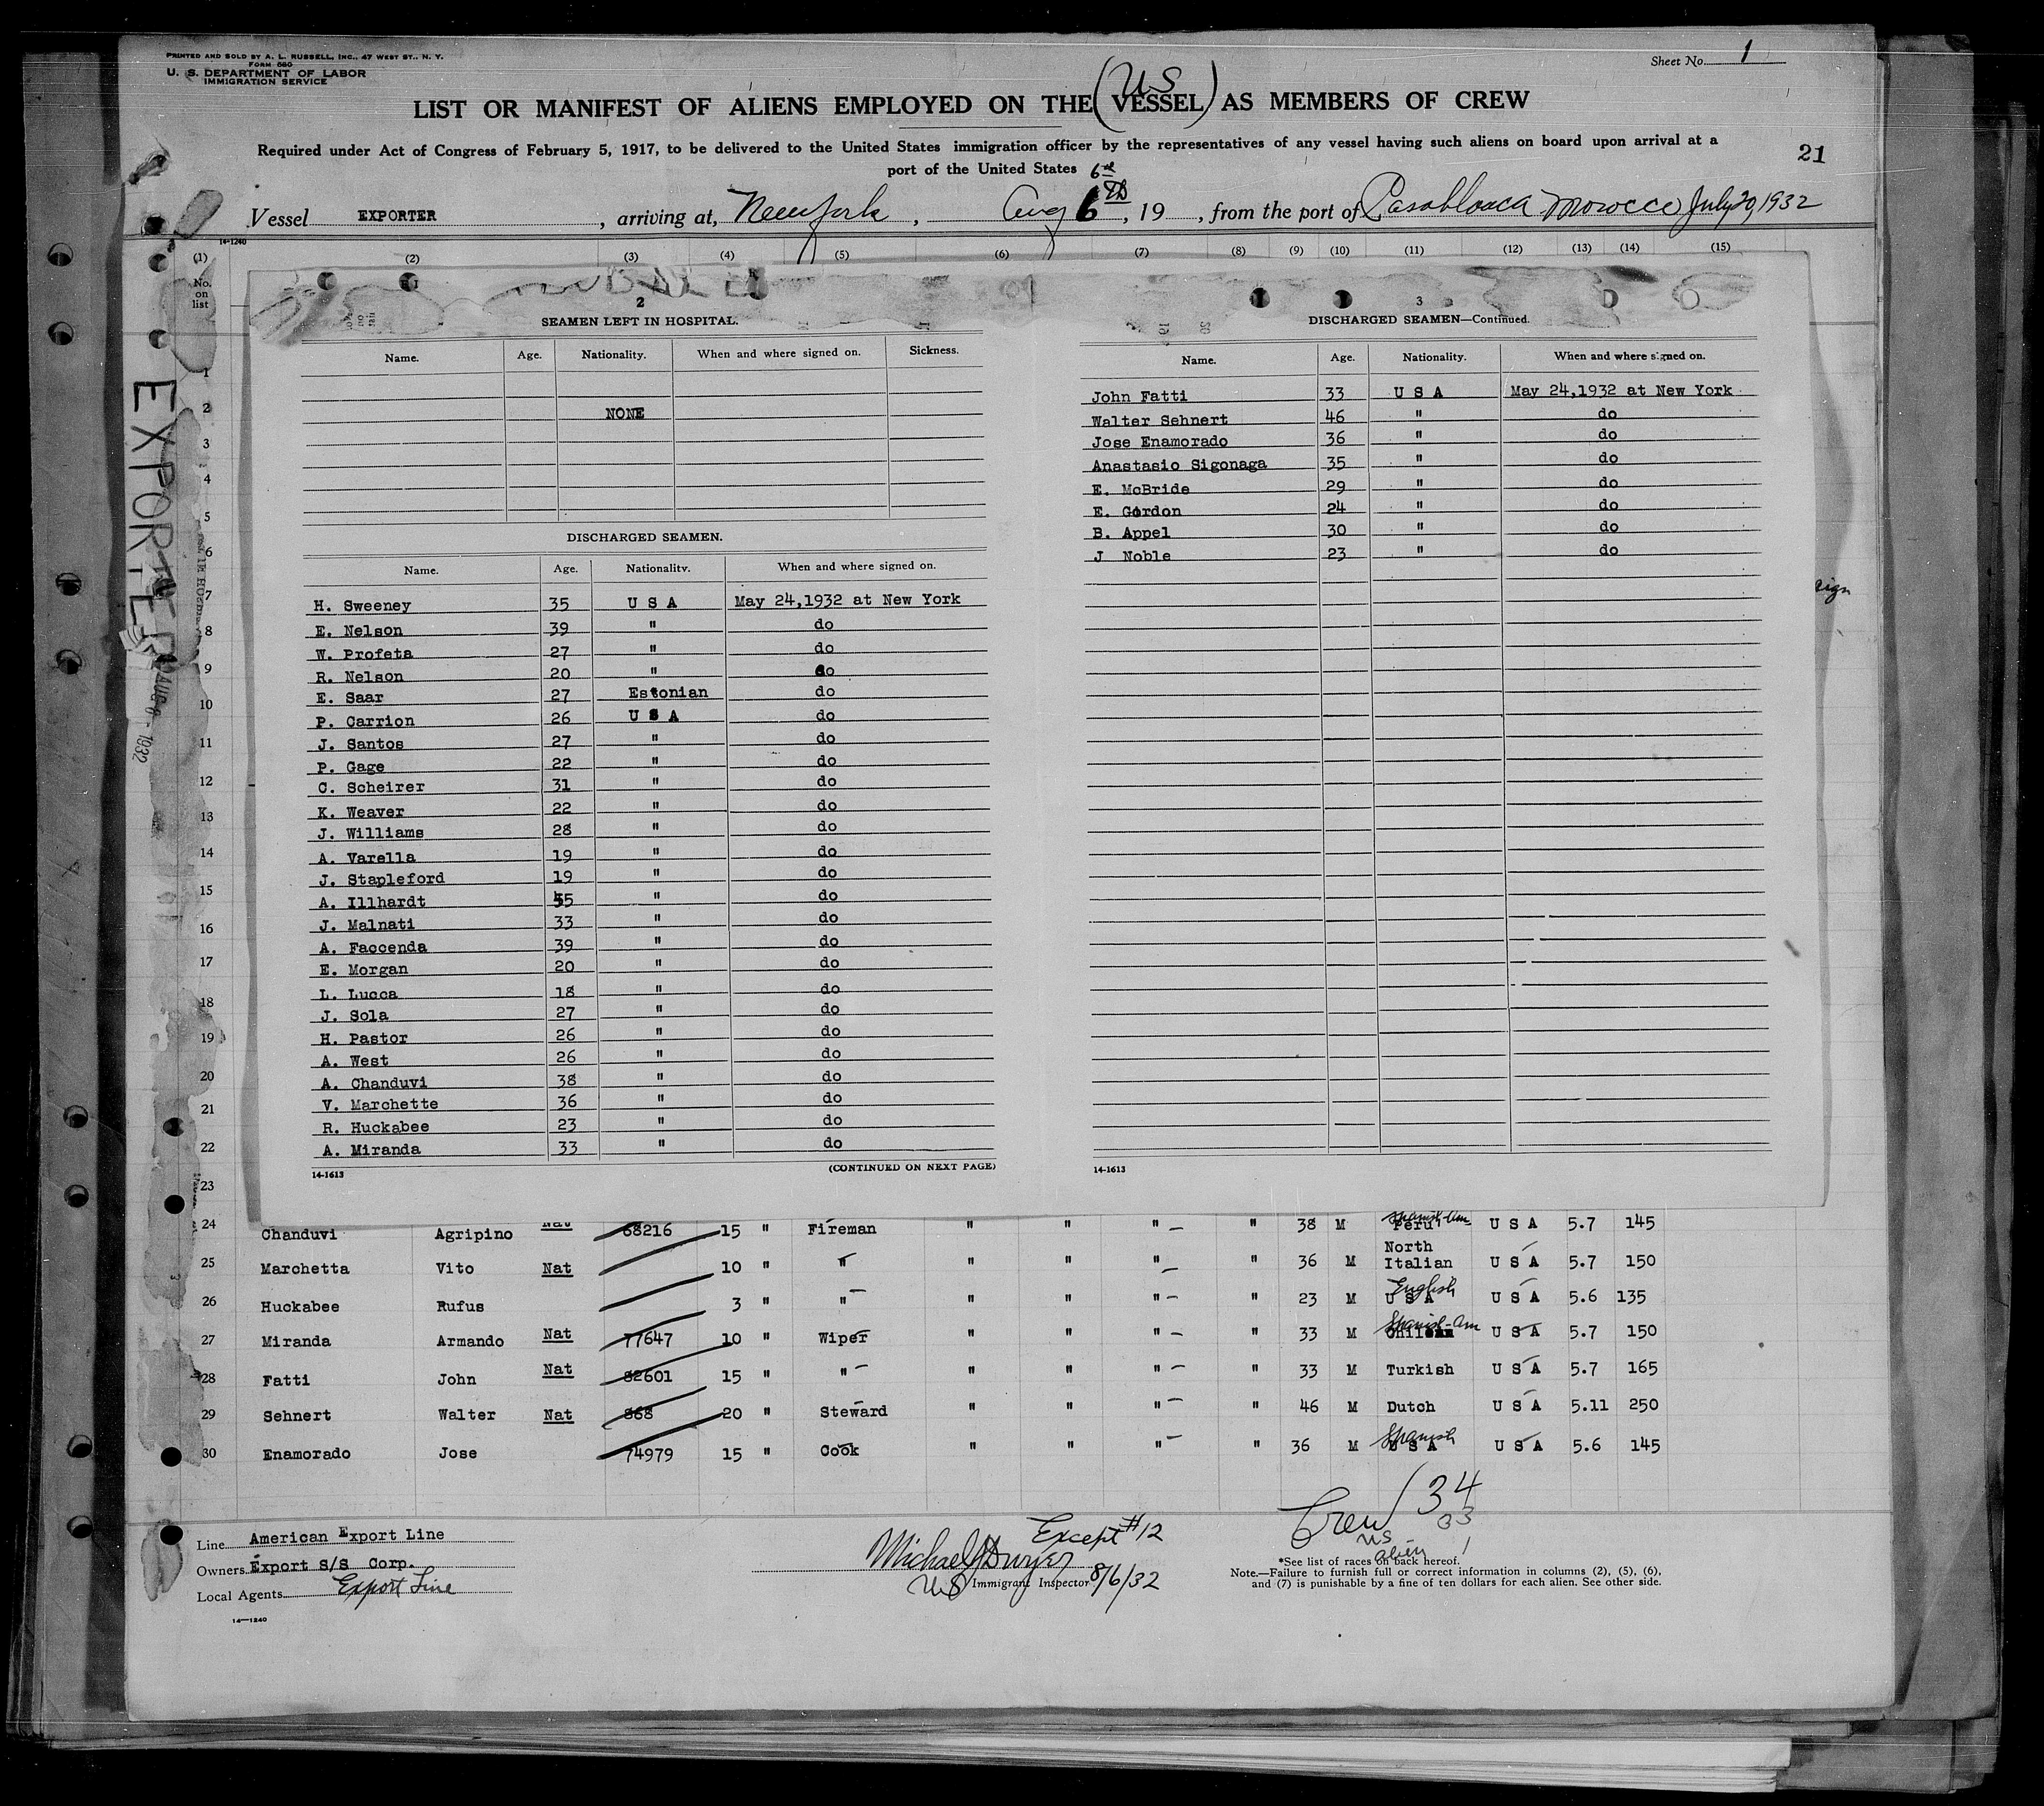 PRINTED AND SOLD BY A. L. RUSSELL, INC., 47 WEST ST., N. Y.
FORM 680
U. S. DEPARTMENT OF LABOR
IMMIGRATION SERVICE
Sheet No. 1
LIST OR MANIFEST OF ALIENS EMPLOYED ON THE (VESSEL) AS MEMBERS OF CREW
US
Required under Act of Congress of February 5, 1917, to be delivered to the United States immigration officer by the representatives of any vessel having such aliens on board upon arrival at a
port of the United States
21
Vessel EXPORTER, arriving at, New York, Aug 6th, 19 , from the port of Casablanca Morocco July 20, 1932
14-1240
(1) (2) (3) (4) (5) (6) (7) (8) (9) (10) (11) (12) (13) (14) (15)
No. on list
EXPORTER
AUG 6 - 1932
2
SEAMEN LEFT IN HOSPITAL.
Name. Age. Nationality. When and where signed on. Sickness.
NONE
DISCHARGED SEAMEN.
Name. Age. Nationality. When and where signed on.
H. Sweeney 35 U S A May 24,1932 at New York
E. Nelson 39 " do
W. Profeta 27 " do
R. Nelson 20 " do
E. Saar 27 Estonian do
P. Carrion 26 U S A do
J. Santos 27 " do
P. Gage 22 " do
C. Scheirer 31 " do
K. Weaver 22 " do
J. Williams 28 " do
A. Varella 19 " do
J. Stapleford 19 " do
A. Illhardt 55 " do
J. Malnati 33 " do
A. Faccenda 39 " do
E. Morgan 20 " do
L. Lucca 18 " do
J. Sola 27 " do
H. Pastor 26 " do
A. West 26 " do
A. Chanduvi 38 " do
V. Marchette 36 " do
R. Huckabee 23 " do
A. Miranda 33 " do
14-1613 (CONTINUED ON NEXT PAGE)
3
DISCHARGED SEAMEN—Continued.
Name. Age. Nationality. When and where signed on.
John Fatti 33 U S A May 24,1932 at New York
Walter Sehnert 46 " do
Jose Enamorado 36 " do
Anastasio Sigonaga 35 " do
E. McBride 29 " do
E. Gordon 24 " do
B. Appel 30 " do
J Noble 23 " do
14-1613
sign
1
2
3
4
5
6
7
8
9
10
11
12
13
14
15
16
17
18
19
20
21
22
23
24 Chanduvi Agripino Nat 68216 15 " Fireman " " " " 38 M Peru Spanish-Am U S A 5.7 145
25 Marchetta Vito Nat 10 " " " " " " 36 M North Italian U S A 5.7 150
26 Huckabee Rufus 3 " " " " " " 23 M U S A English U S A 5.6 135
27 Miranda Armando Nat 77647 10 " Wiper " " " " 33 M Chilean Spanish-Am U S A 5.7 150
28 Fatti John Nat 82601 15 " " " " " " 33 M Turkish U S A 5.7 165
29 Sehnert Walter Nat 868 20 " Steward " " " " 46 M Dutch U S A 5.11 250
30 Enamorado Jose 74979 15 " Cook " " " " 36 M U S A Spanish U S A 5.6 145
Line American Export Line
Owners Export S/S Corp.
Local Agents Export Line
14—1240
Except #12
Michael J Dwyer
US Immigrant Inspector 8/6/32
Crew 34
US 33
alien 1
*See list of races on back hereof.
Note.—Failure to furnish full or correct information in columns (2), (5), (6),
and (7) is punishable by a fine of ten dollars for each alien. See other side.